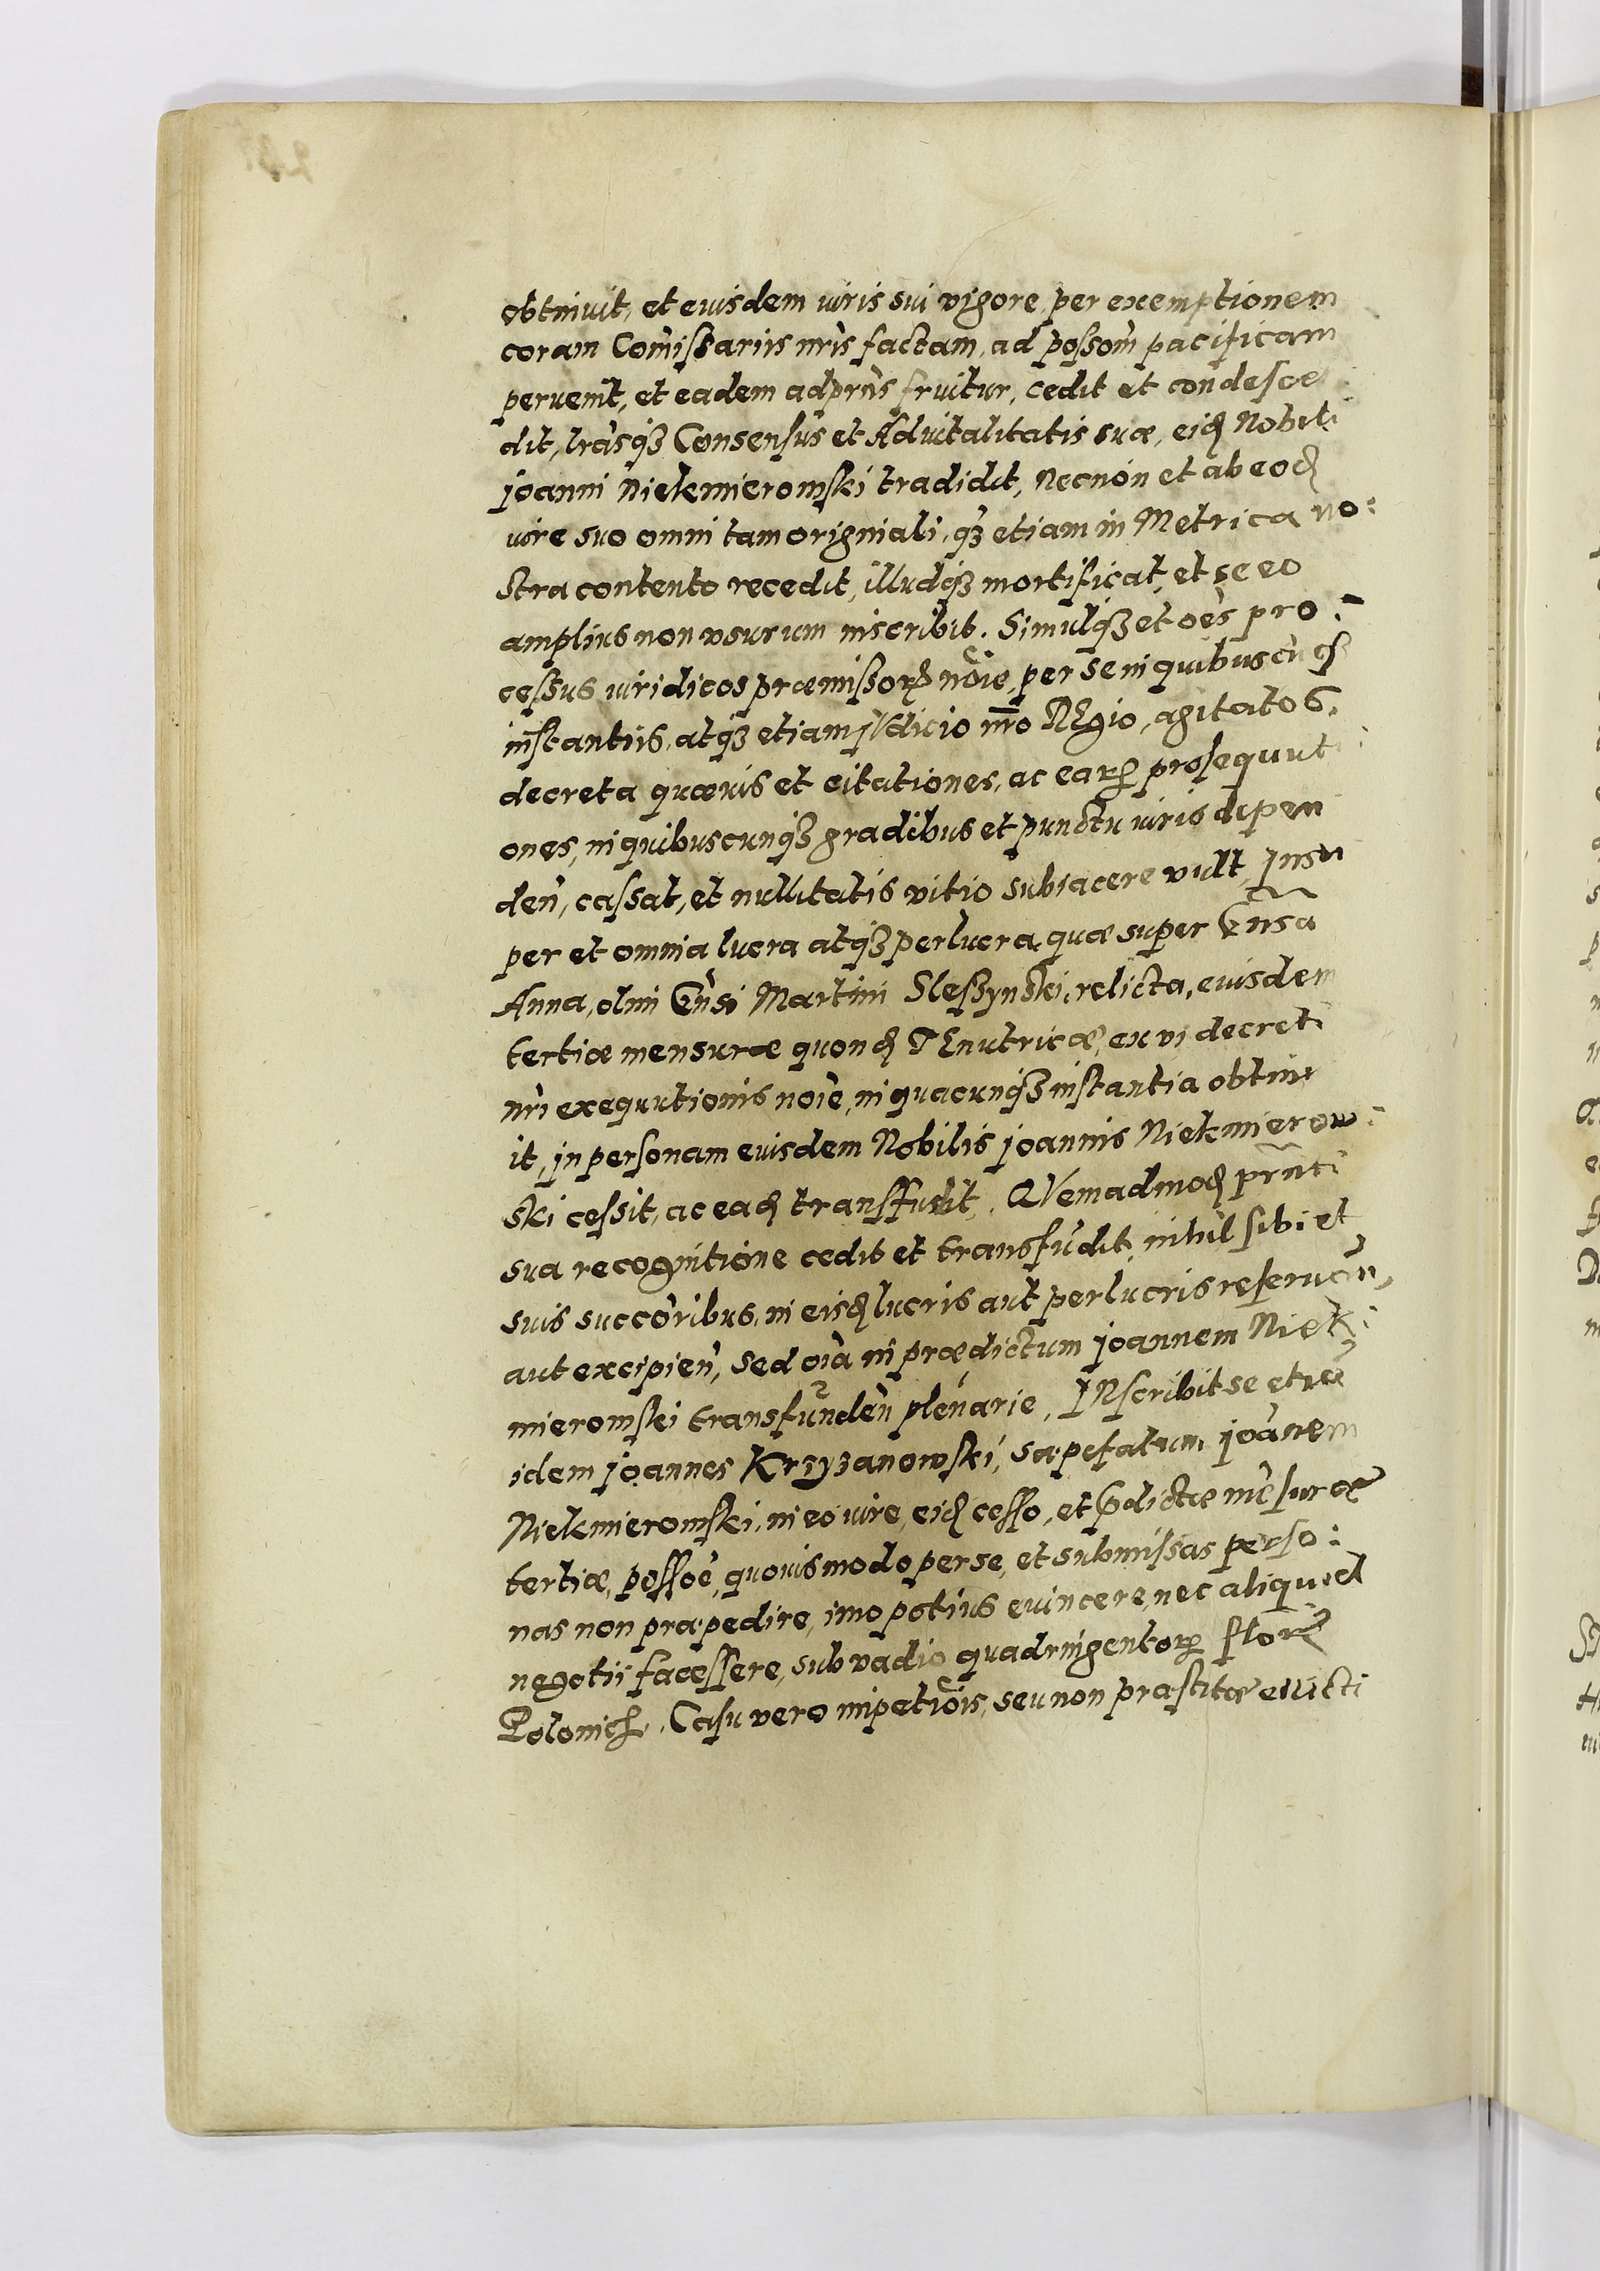 obtinuit, et eiusdem iuris sui vigore, per exemptionem
coram Com̃issariis nr̃is factam, ad possom̃ pacificam
peruenit, et eadem adpr̃ns fruitur, cedit et condescen
dit, lr̃asq3 Consensus et Aduitalitatis suæ, eid Nobili
Joanni Niekmierowski tradidit, Necnon et ab eod
iure suo omni tam originali, q3 etiam in Metrica no:
stra contento recedit, illudq3 mortificat, et se eo
amplius non vsurum inscribit. Simulq3 et oẽs pro:
cessus iuridicos præmissorꝝ noĩe, per se in quibuscũq3
instantiis, atq3 etiam Judicio nr̃o REgio, agitatos,
decreta quævis et citationes, ac earꝝ prosequuti
ones, in quibuscunq3 gradibus et punctu iuris depen
deñ, cassat, et nullitatis vitio subiacere vult, Insu
per et omnia lucra atq3 perlucra, quæ super Gñsa
Anna, olim Gñsi Martini Sleszynski, relicta, eiusdem
tertiæ mensuræ quond TEnutricæ, ex vi decreti
nr̃i exequutionis noĩe, in quacunq3 instantia obtinu
it, in personam eiusdem Nobilis Joannis Niekmierow:
ski cessit, ac ead transffudit, QVemadmod pr̃nti
sua recognitione cedit et transfudit, nihil sibi et
suis succoribus, in eisd lucris aut perlucris reseruañ,
aut excipieñ, sed oĩa in prædictum Joannem Niek:
mierowski transfundeñ plenarie, INscribit se etiã
idem Joannes Krzyzanowski, sæpefatum Joãnem
Niekmierowski, in eo iure, eid cesso, et p̃dictæ mẽsuræ
tertiæ, possoẽ, quouismodo per se, et submissas perso:
nas non præpedire, imo potius euincere, nec aliquid
negotii facessere, sub vadio quadringentorꝝ florẽ
Polonicꝝ. Casu vero impetiõis, seu non præstitæ euicti